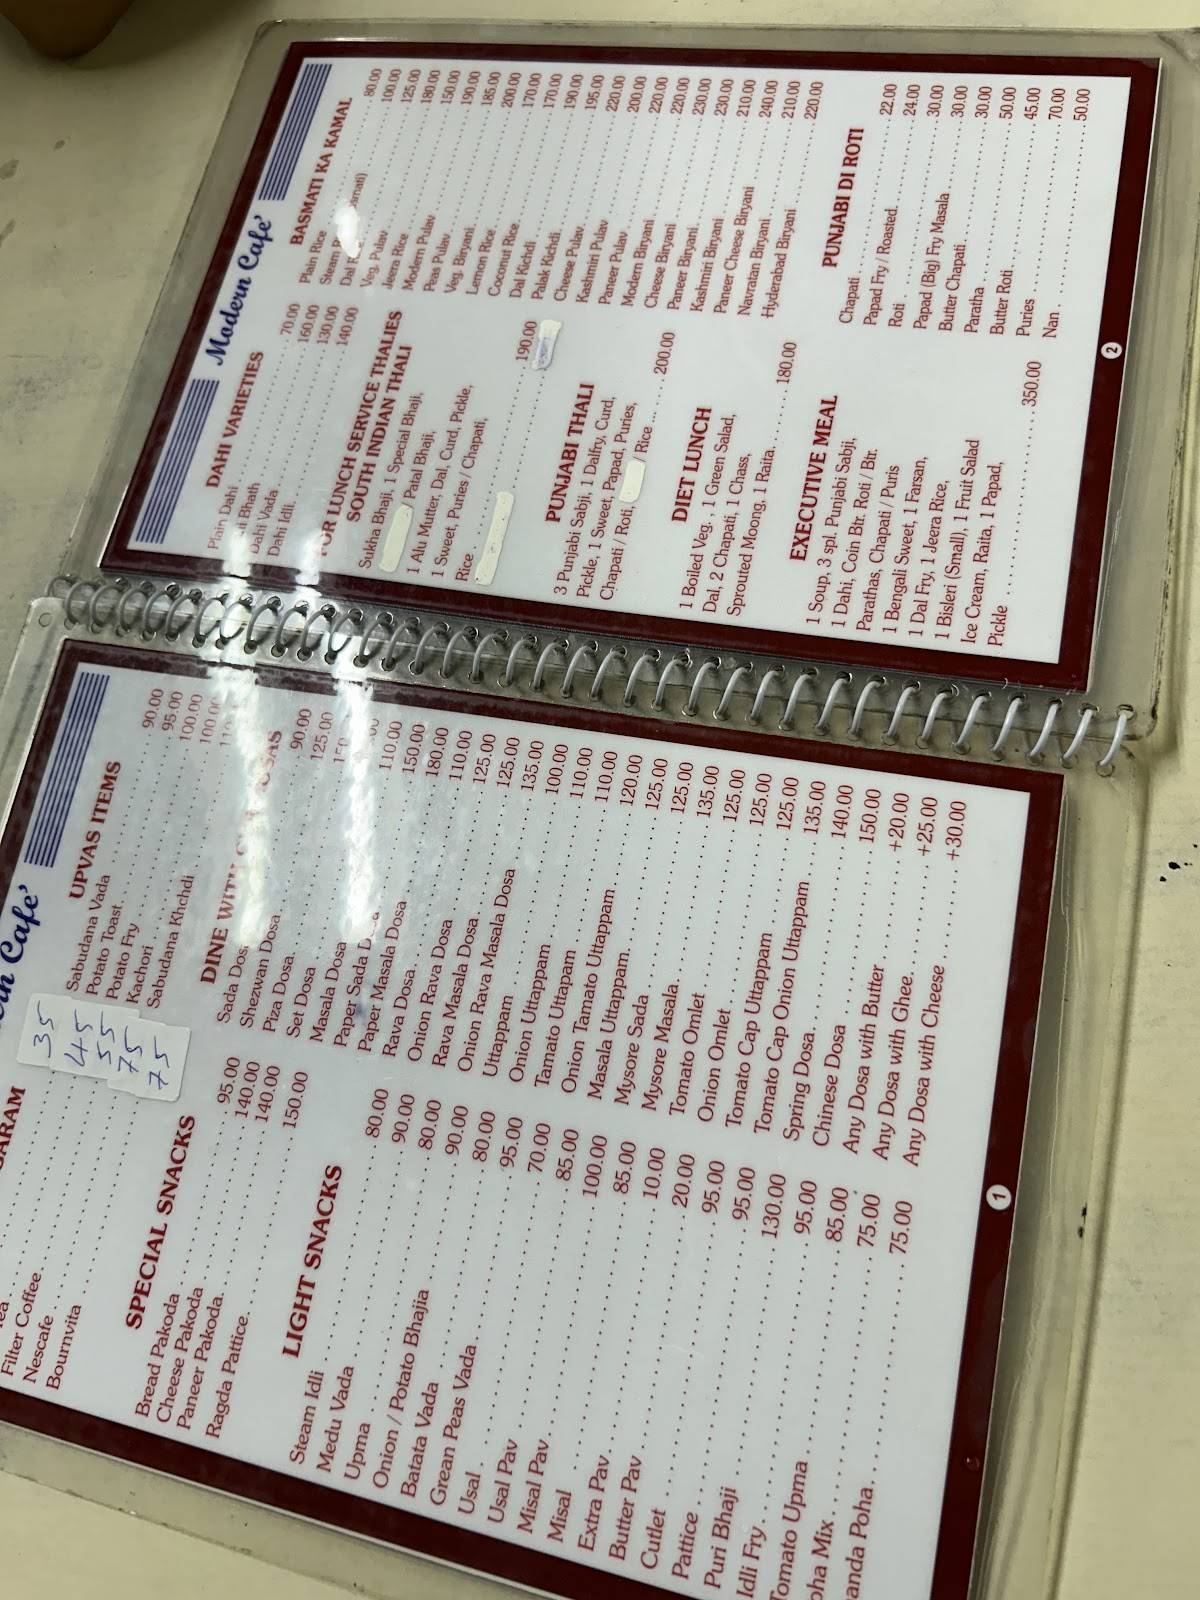 Modern Cafe'
DAHI VARIETIES
Plain Dahi 70.00
Bhath 160.00
Dahi Vada 130.00
Dahi Idli 140.00
FOR LUNCH SERVICE THALIES
SOUTH INDIAN THALI
Sukha Bhaji, 1 Special Bhaji,
/ Patal Bhaji,
1 Alu Mutter, Dal, Curd, Pickle,
1 Sweet, Puries / Chapati,
Rice 190.00
PUNJABI THALI
3 Punjabi Sabji, 1 Dalfry, Curd,
Pickle, 1 Sweet, Papad, Puries,
Chapati / Roti, / Rice 200.00
DIET LUNCH
1 Boiled Veg. , 1 Green Salad,
Dal, 2 Chapati, 1 Chass,
Sprouted Moong, 1 Raita. 180.00
EXECUTIVE MEAL
1 Soup, 3 spl. Punjabi Sabji,
1 Dahi, Coin Btr. Roti / Btr.
Parathas, Chapati / Puris
1 Bengali Sweet, 1 Farsan,
1 Dal Fry, 1 Jeera Rice,
1 Bisleri (Small), 1 Fruit Salad
Ice Cream, Raita, 1 Papad,
Pickle 350.00
BASMATI KA KAMAL
Plain Rice 80.00
Steam 100.00
Dal 125.00
Veg. Pulav 180.00
Jeera Rice 150.00
Modern Pulav 190.00
Peas Pulav 185.00
Veg. Biryani 200.00
Lemon Rice 170.00
Coconut Rice 170.00
Dal Kichdi 190.00
Palak Kichdi 195.00
Cheese Pulav 220.00
Kashmiri Pulav 200.00
Paneer Pulav 220.00
Modern Biryani 220.00
Cheese Biryani 230.00
Paneer Biryani 230.00
Kashmiri Biryani 210.00
Paneer Cheese Biryani 240.00
Navratan Biryani 210.00
Hyderabad Biryani 220.00
PUNJABI DI ROTI
Chapati 22.00
Papad Fry / Roasted 24.00
Roti 30.00
Papad (Big) Fry Masala 30.00
Butter Chapati 30.00
Paratha 50.00
Butter Roti 45.00
Puries 70.00
Nan 50.00
2
Cafe'
35
45
Filter Coffee 55
Nescafe 75
Bournvita 75
SPECIAL SNACKS
Bread Pakoda 95.00
Cheese Pakoda 140.00
Paneer Pakoda 140.00
Ragda Pattice 150.00
LIGHT SNACKS
Steam Idli 80.00
Medu Vada 90.00
Upma 80.00
Onion / Potato Bhajia 90.00
Batata Vada 80.00
Grean Peas Vada 95.00
Usal 70.00
Usal Pav 85.00
Misal Pav 100.00
Misal 85.00
Extra Pav 10.00
Butter Pav 20.00
Cutlet 95.00
Pattice 95.00
Puri Bhaji 130.00
Idli Fry 95.00
Tomato Upma 85.00
Poha Mix 75.00
Kanda Poha 75.00
UPVAS ITEMS
Sabudana Vada 90.00
Potato Toast 95.00
Potato Fry 100.00
Kachori 100.00
Sabudana Khchdi
DINE WITH
Sada Dosa 90.00
Shezwan Dosa 125.00
Piza Dosa
Set Dosa
Masala Dosa 110.00
Paper Sada 150.00
Paper Masala Dosa 180.00
Rava Dosa 110.00
Onion Rava Dosa 125.00
Rava Masala Dosa 125.00
Onion Rava Masala Dosa 135.00
Uttappam 100.00
Onion Uttappam 110.00
Tamato Uttapam 110.00
Onion Tamato Uttappam 120.00
Masala Uttappam 125.00
Mysore Sada 125.00
Mysore Masala 135.00
Tomato Omlet 125.00
Onion Omlet 125.00
Tomato Cap Uttappam 125.00
Tomato Cap Onion Uttappam 135.00
Spring Dosa 140.00
Chinese Dosa 150.00
Any Dosa with Butter +20.00
Any Dosa with Ghee +25.00
Any Dosa with Cheese +30.00
1